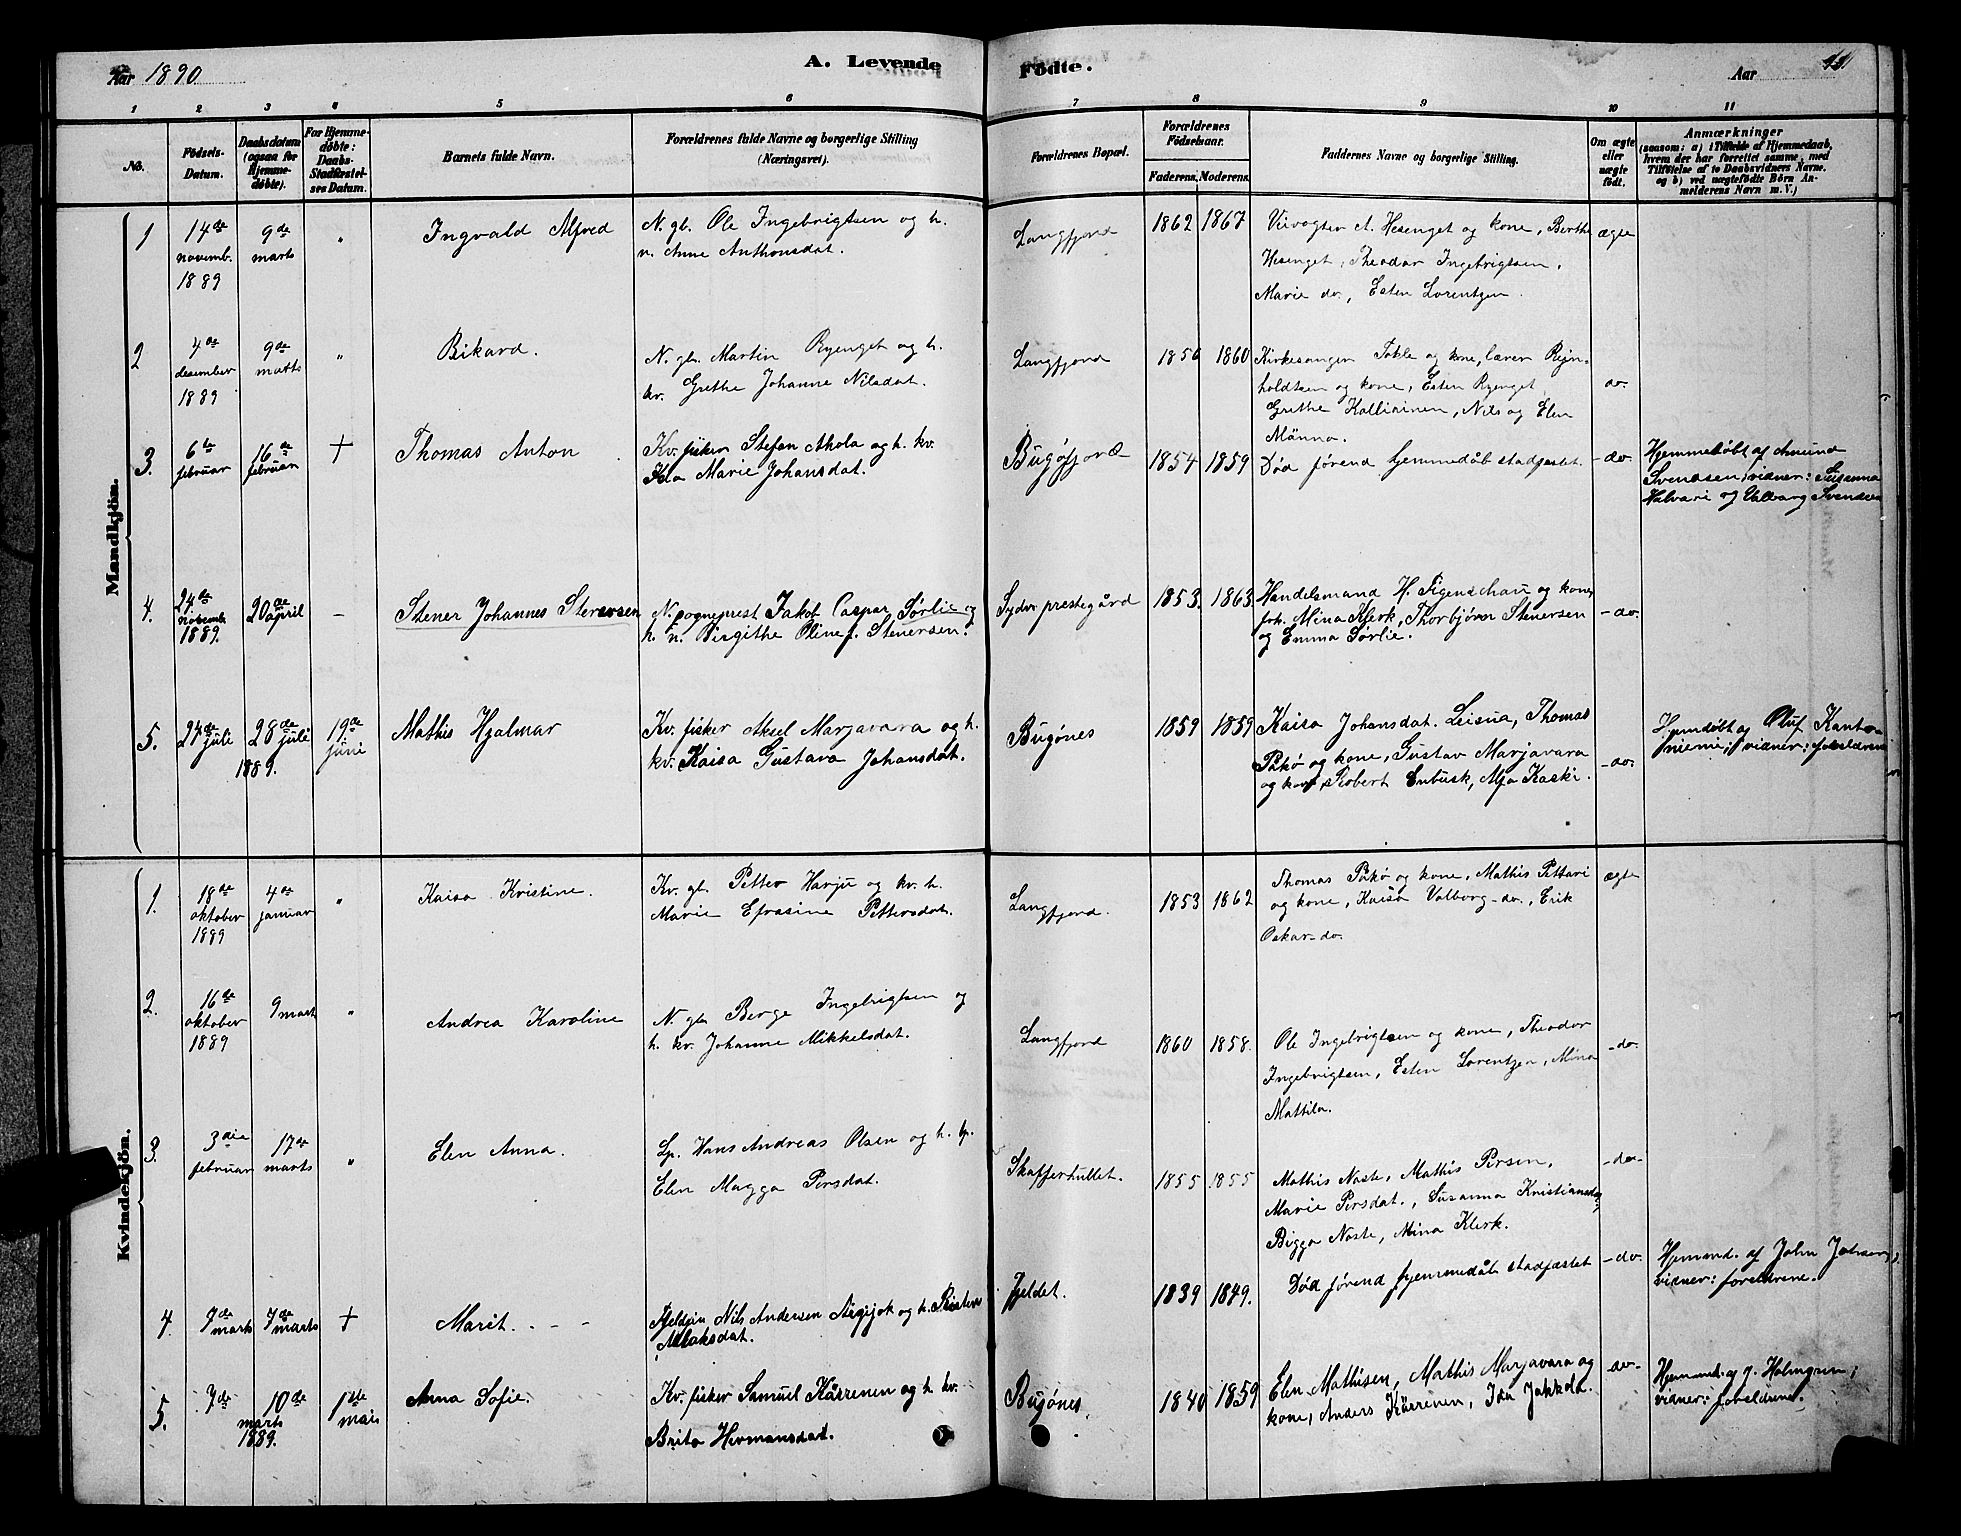 Aar 1890
A. Levende Födte.
Aar
1 2 3 4 5 6 7 8 9 10 11
No.
Födsels-
Datum.
Daabsdatum
(ogsaa for
Hjemme-
döbte).
For Hjemme-
döbte:
Daabs-
Stadfæstel-
ses Datum.
Barnets fulde Navn.
Forældrenes fulde Navne og borgerlige Stilling
(Næringsvei).
Forældrenes Bopæl.
Forældrenes
Födselsaar.
Faderens. Moderens.
Faddernes Navne og borgerlige Stilling.
Om ægte
eller
uægte
født.
Anmærkninger
(saasom: a) i Tilfælde af Hjemmedaab,
hvem der har forrettet samme, med
Tilföielse af to Daabsvidners Navne.
og b) ved uægtefödte Börn An-
melderens Navn m. V.)
Mandkjön.
1
14de
novemb.
1889
9de
marts
"
Ingvald Alfred
N. gb. Ole Ingebrigtsen og h.
n. Anne Anthonsdat.
Langfjord
1862 1867
Hesenget og kone, Berthe
Hesenget, Theodor Ingebrigtsen,
Marie do., Esten Lorentzen.
ægte
2
4de
desember
1889
9de
marts
"
Rikard.
N. gb. Martin Ryenget og h.
kv. Grethe Johanne Nilsdat.
Langfjord
1856 1860
Kirkesanger Tokle og kone, lærer Rejn-
holdtsen og kone, Esten Ryenget
Grethe Kallinen, Nils og Elen
Männa.
do.
3.
6te
februar
16de
februar
+
Thomas Anton
Kv. fisker Stefan Akola og h. kv.
Ida Marie Johansdat.
Bugøfjord
1854 1859
Død førend hjemmedåb stadfæstet.
-do.
Hjemmedøbt af Amund
Svendsen; vidner: Susanna
Halvari og Valborg Svendsen
4.
24de
novemb.
1889.
20de
april
-
Stener Johannes Stenersen
N. sogneprest Jakob Caspar Sørlie og
h. n. Birgithe Oline f. Stenersen.
Sydv. prestegård
1853. 1863.
Handelsmand H. Figenschau og kone,
frk. Mina Klerk, Thorbjørn Stenersen
og Emma Sørlie.
-do.
5.
27de
juli
28de
juli
1889.
19de
juni
Mathis Hjalmar
Kv. fisker Aksel Marjavara og h.
kv. Kaisa Gustava Johansdat.
Bugønes
1859 1859
Kaisa Johansdat. Leisua, Thomas
Påkø og kone, Gustav Marjavara
og kone, Robert Enbusk, Alfa Kaski.
-do.
Hjemdøbt af Oluf Kanto-
niemi; vidner: forældrene
Kvindekjön.
1.
18de
oktober
1889
4de
januar
"
Kaisa Kristine.
Kv. gb. Petter Harju og kv. h.
Marie Efrasine Pettersdat.
Langfjord.
1853 1862
Thomas Påkø og kone, Mathis Pittari
og kone, Kaisa Valborg -do., Erik
Oskar -do.
ægte
2.
16de
oktober
1889
9 mart
"
Andrea Karoline
N. gb. Berge Ingebrigtsen og
h. kv. Johanne Mikkelsdat.
Langfjord
1860 1858.
Ole Ingebrigtsen og kone, Theodor
Ingebrigtsen, Esten Lorentzen, Mina
Mattila.
-do.
3.
3die
februar
17de
marts
"
Elen Anna.
Lp. Hans Andreas Olsen og h. lp.
Elen Magga Persdat.
Skafferhullet.
1855 1855
Mathis Naste, Mathis Persen,
Marie Persdat., Susanna Kristiansdat,
Bigga Naste, Mina Klerk.
-do-
4.
7de
marts
7de
marts
+
Marit. - - -
Fjeldfin Nils Andersen Aigijok og h. Kirsten
Aslaksdat.
Fjeldet.
1839 1849.
Død førend hjemmedåb stadfæstet
-do.
Hjemmd. af John Johnsen,
vidner: foreldrene.
5.
7de
10de
marts
1889.
1ste
mais
Anna Sofie.
Kv. fisker Samuel Kårrenen og h. kv.
Brita Hermansdat.
Bugønes.
1840 1859
Elen Mathisen, Mathis Marjavara og
kone, Anders Kårrenen, Ida Jakkola.
-do-
Hjemmd. af J. Holmgren;
vidner: foreldrene.